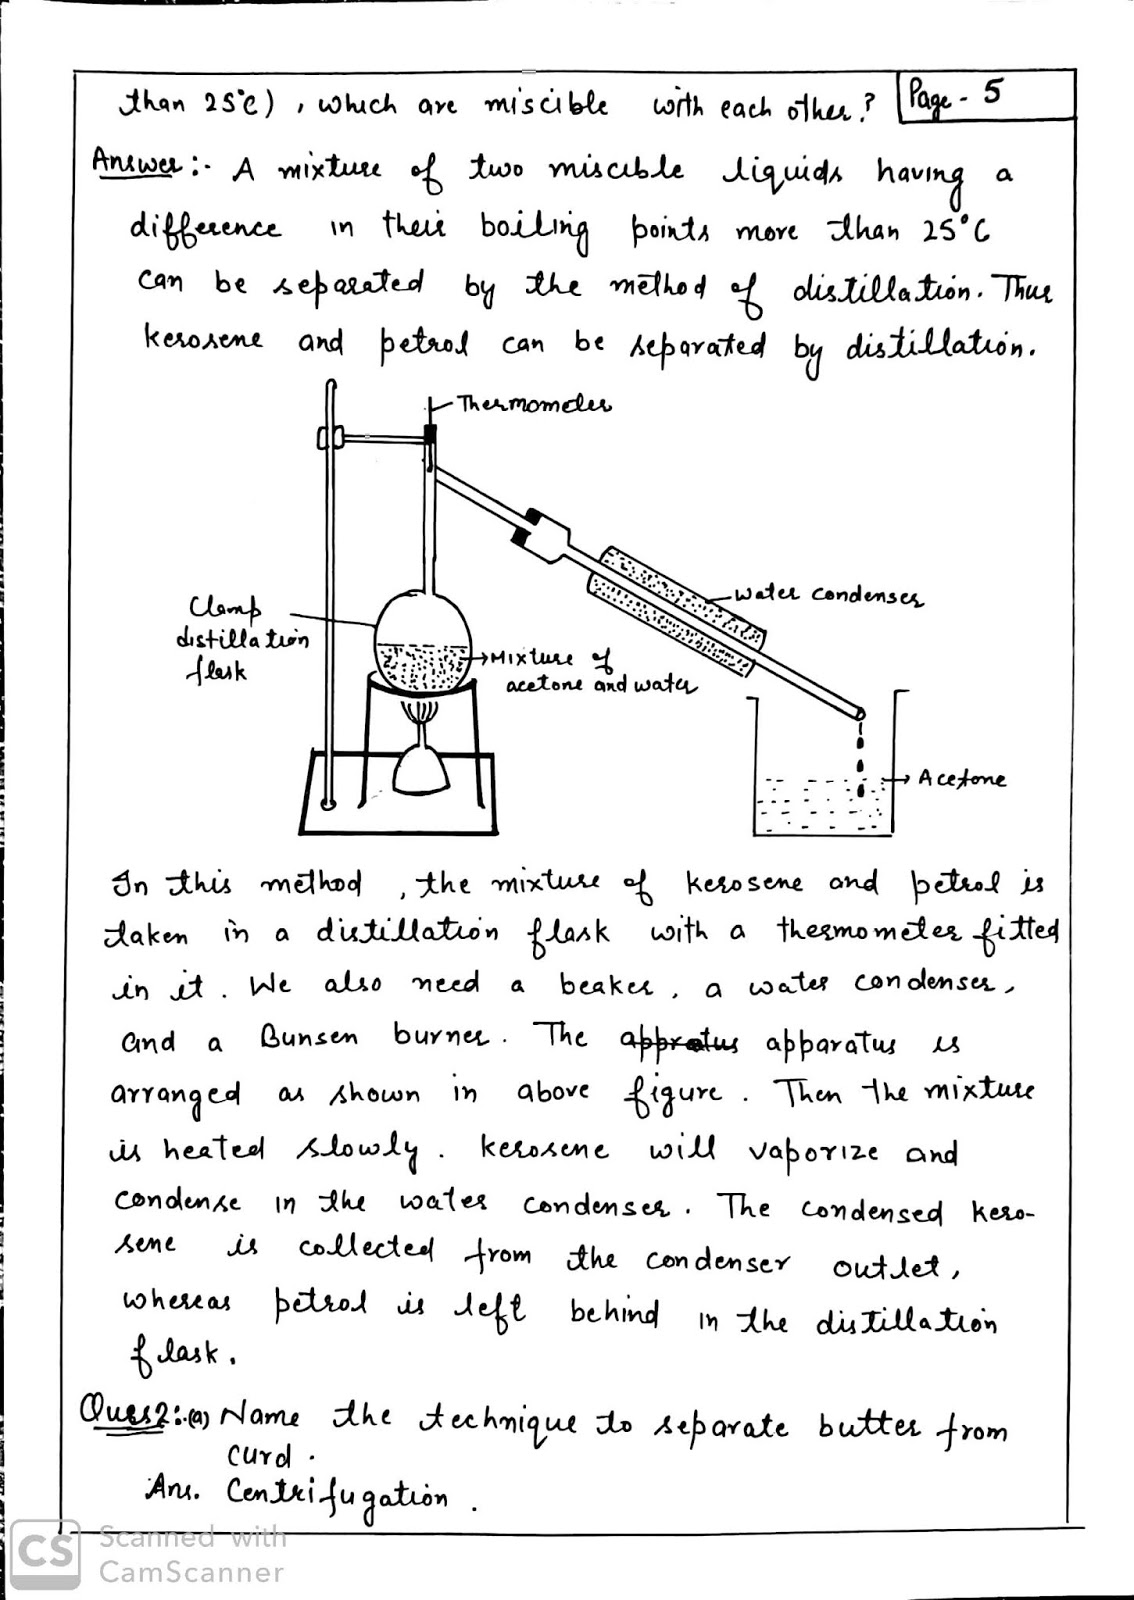 than 25°C) , which are miscible with each other?
Page - 5
Answer :- A mixture of two miscible liquids having a
difference in their boiling points more than 25°C
can be separated by the method of distillation. Thus
kerosene and petrol can be separated by distillation.
Thermometer
water condenser
Clamp
distillation
flask
Mixture of
acetone and water
Acetone
In this method , the mixture of kerosene and petrol is
taken in a distillation flask with a thermometer fitted
in it . We also need a beaker , a water condenser ,
and a Bunsen burner . The appratus apparatus is
arranged as shown in above figure . Then the mixture
is heated slowly . kerosene will vaporize and
condense in the water condenser . The condensed kero-
sene is collected from the condenser outlet ,
whereas petrol is left behind in the distillation
flask .
Ques2:-(a) Name the technique to separate butter from
curd .
Ans. Centrifugation .
CS
Scanned with
CamScanner